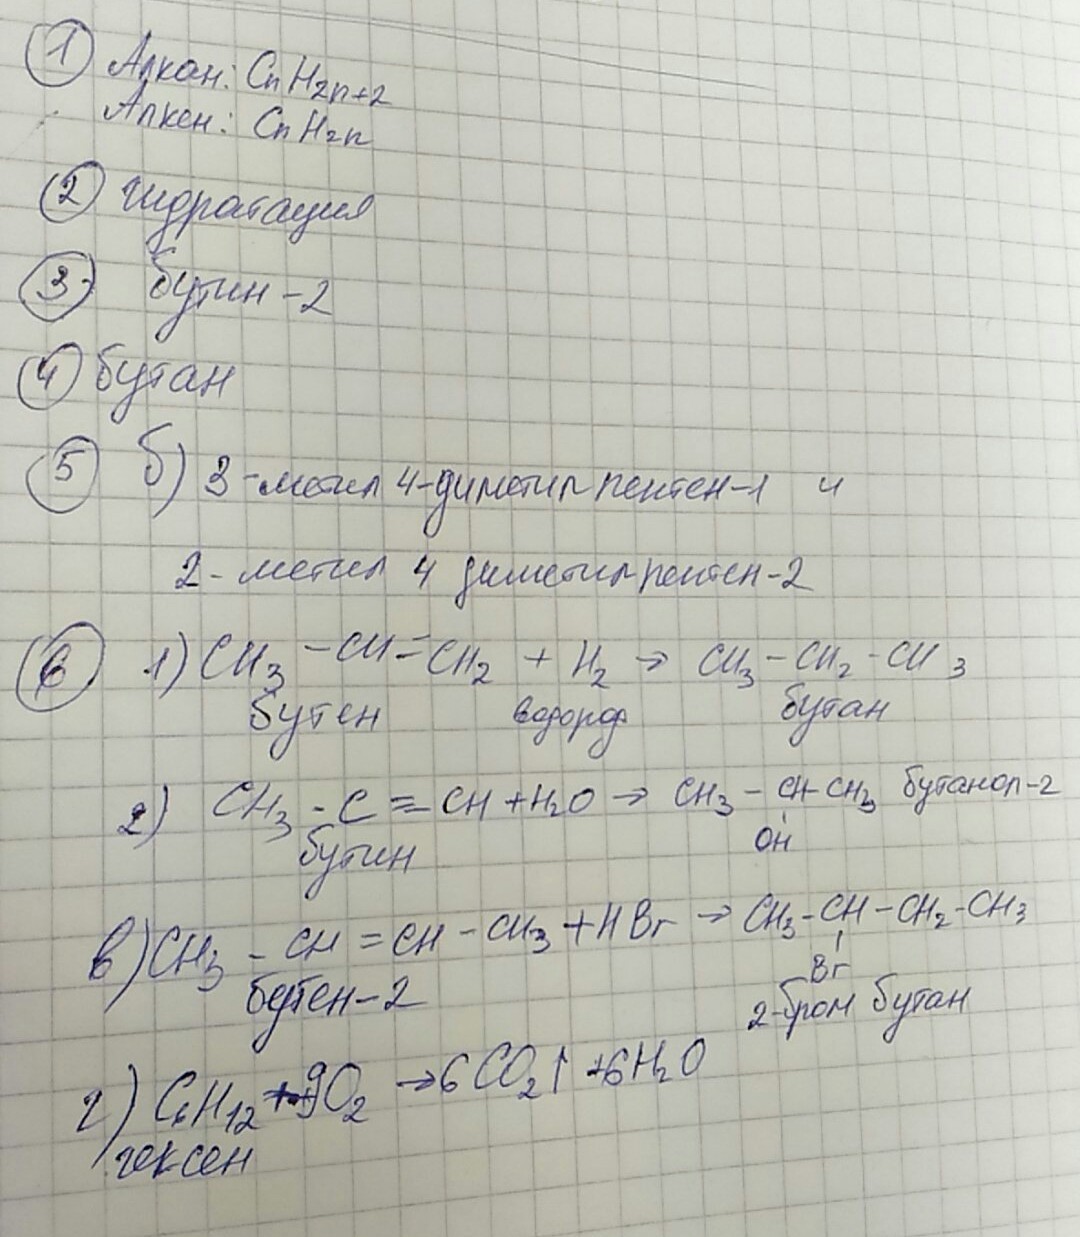 1 Алкан: CnH2n+2
Алкен: CnH2n
2 гидратация
3 бутин-2
4 бутан
5 б) 3-метил 4-диметилпентен-1 и
2-метил 4 диметилпентен-2
6 1) CH3 - CH = CH2 + H2 → CH3 - CH2 - CH3
бутен водород бутан
2) CH3 - C ≡ CH + H2O → CH3 - CH - CH3 бутанол-2
бутин OH
в) CH3 - CH = CH - CH3 + HBr → CH3 - CH - CH2 - CH3
бутен-2 Br
2-бром бутан
г) C6H12 + 9O2 → 6CO2↑ + 6H2O
гексен